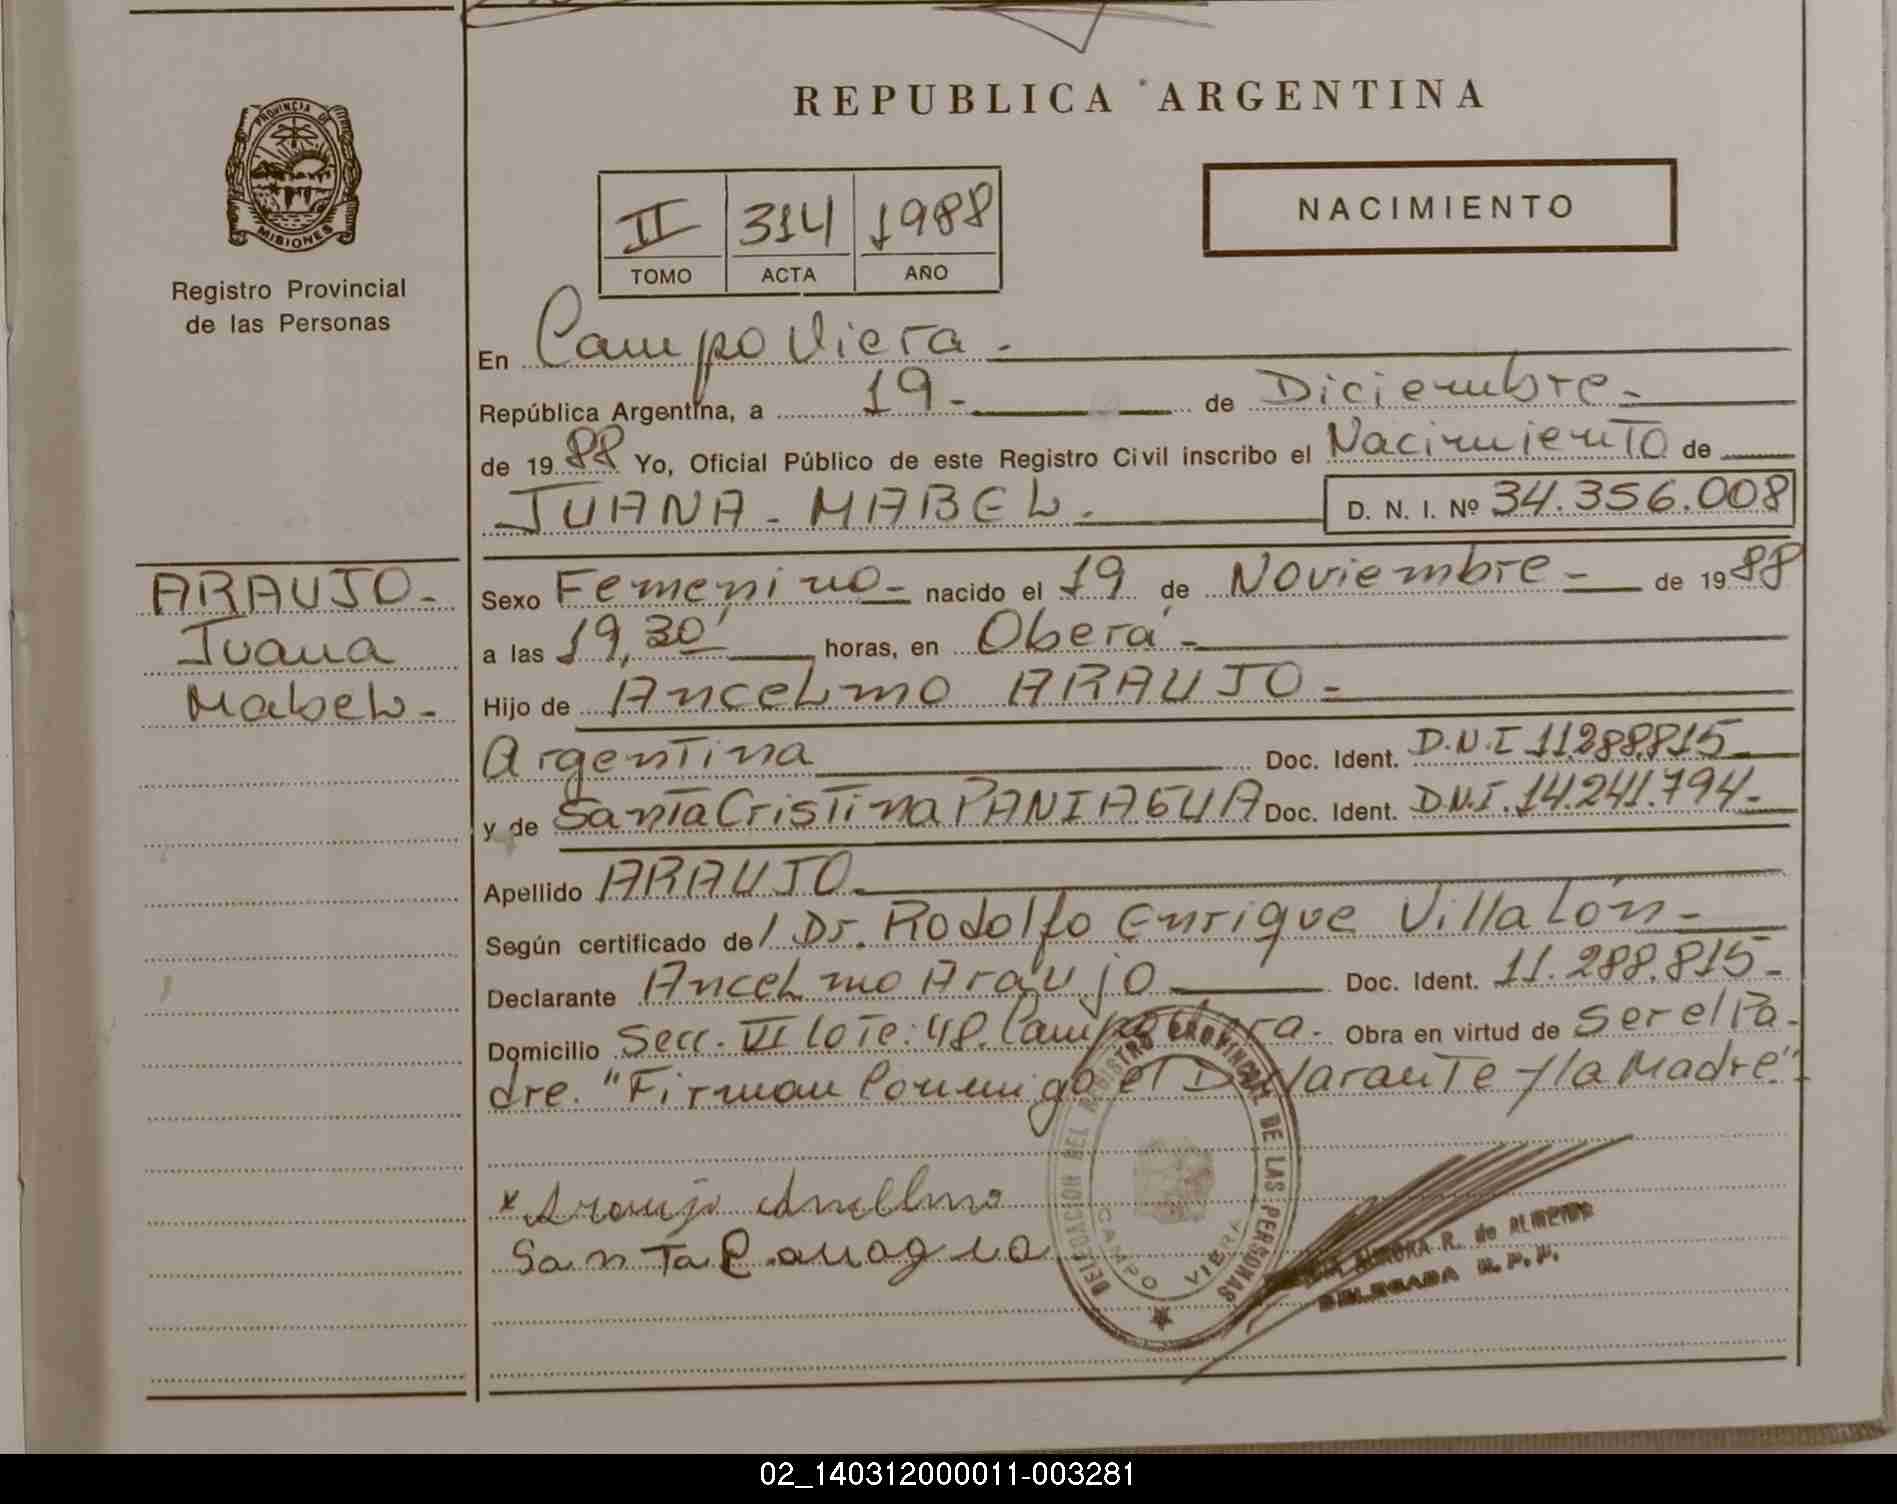 REPUBLICA ARGENTINA
PROVINCIA DE
MISIONES
Registro Provincial
de las Personas
II 314 1988
TOMO ACTA AÑO
NACIMIENTO
En Campo Viera.-
República Argentina, a 19- de Diciembre-
de 1988 Yo, Oficial Público de este Registro Civil inscribo el Nacimiento de
JUANA-MABEL.
D. N. I. Nº 34.356.008
ARAUJO-
Juana
Mabel-
Sexo Femenino- nacido el 19 de Noviembre- de 1988
a las 19,30' horas, en Oberá-
Hijo de Ancelmo ARAUJO-
Argentina Doc. Ident. D.N.I 11.288.815-
y de Santa Cristina PANIAGUA Doc. Ident. D.N.I. 14.241.794-
Apellido ARAUJO-
Según certificado de/ Dr. Rodolfo Enrique Villalón-
Declarante Ancelmo Araujo Doc. Ident. 11.288.815-
Domicilio Secc. VI lote: 48. Campo Viera. Obra en virtud de Ser el Pa-
dre. "Firman Conmigo el Declarante y la Madre"
DELEGACION DEL REGISTRO PROVINCIAL DE LAS PERSONAS
CAMPO VIERA
Araujo Ancelmo
Santa
AURORA R. de ALMEIDA
DELEGADA R. P. P.
02_140312000011-003281